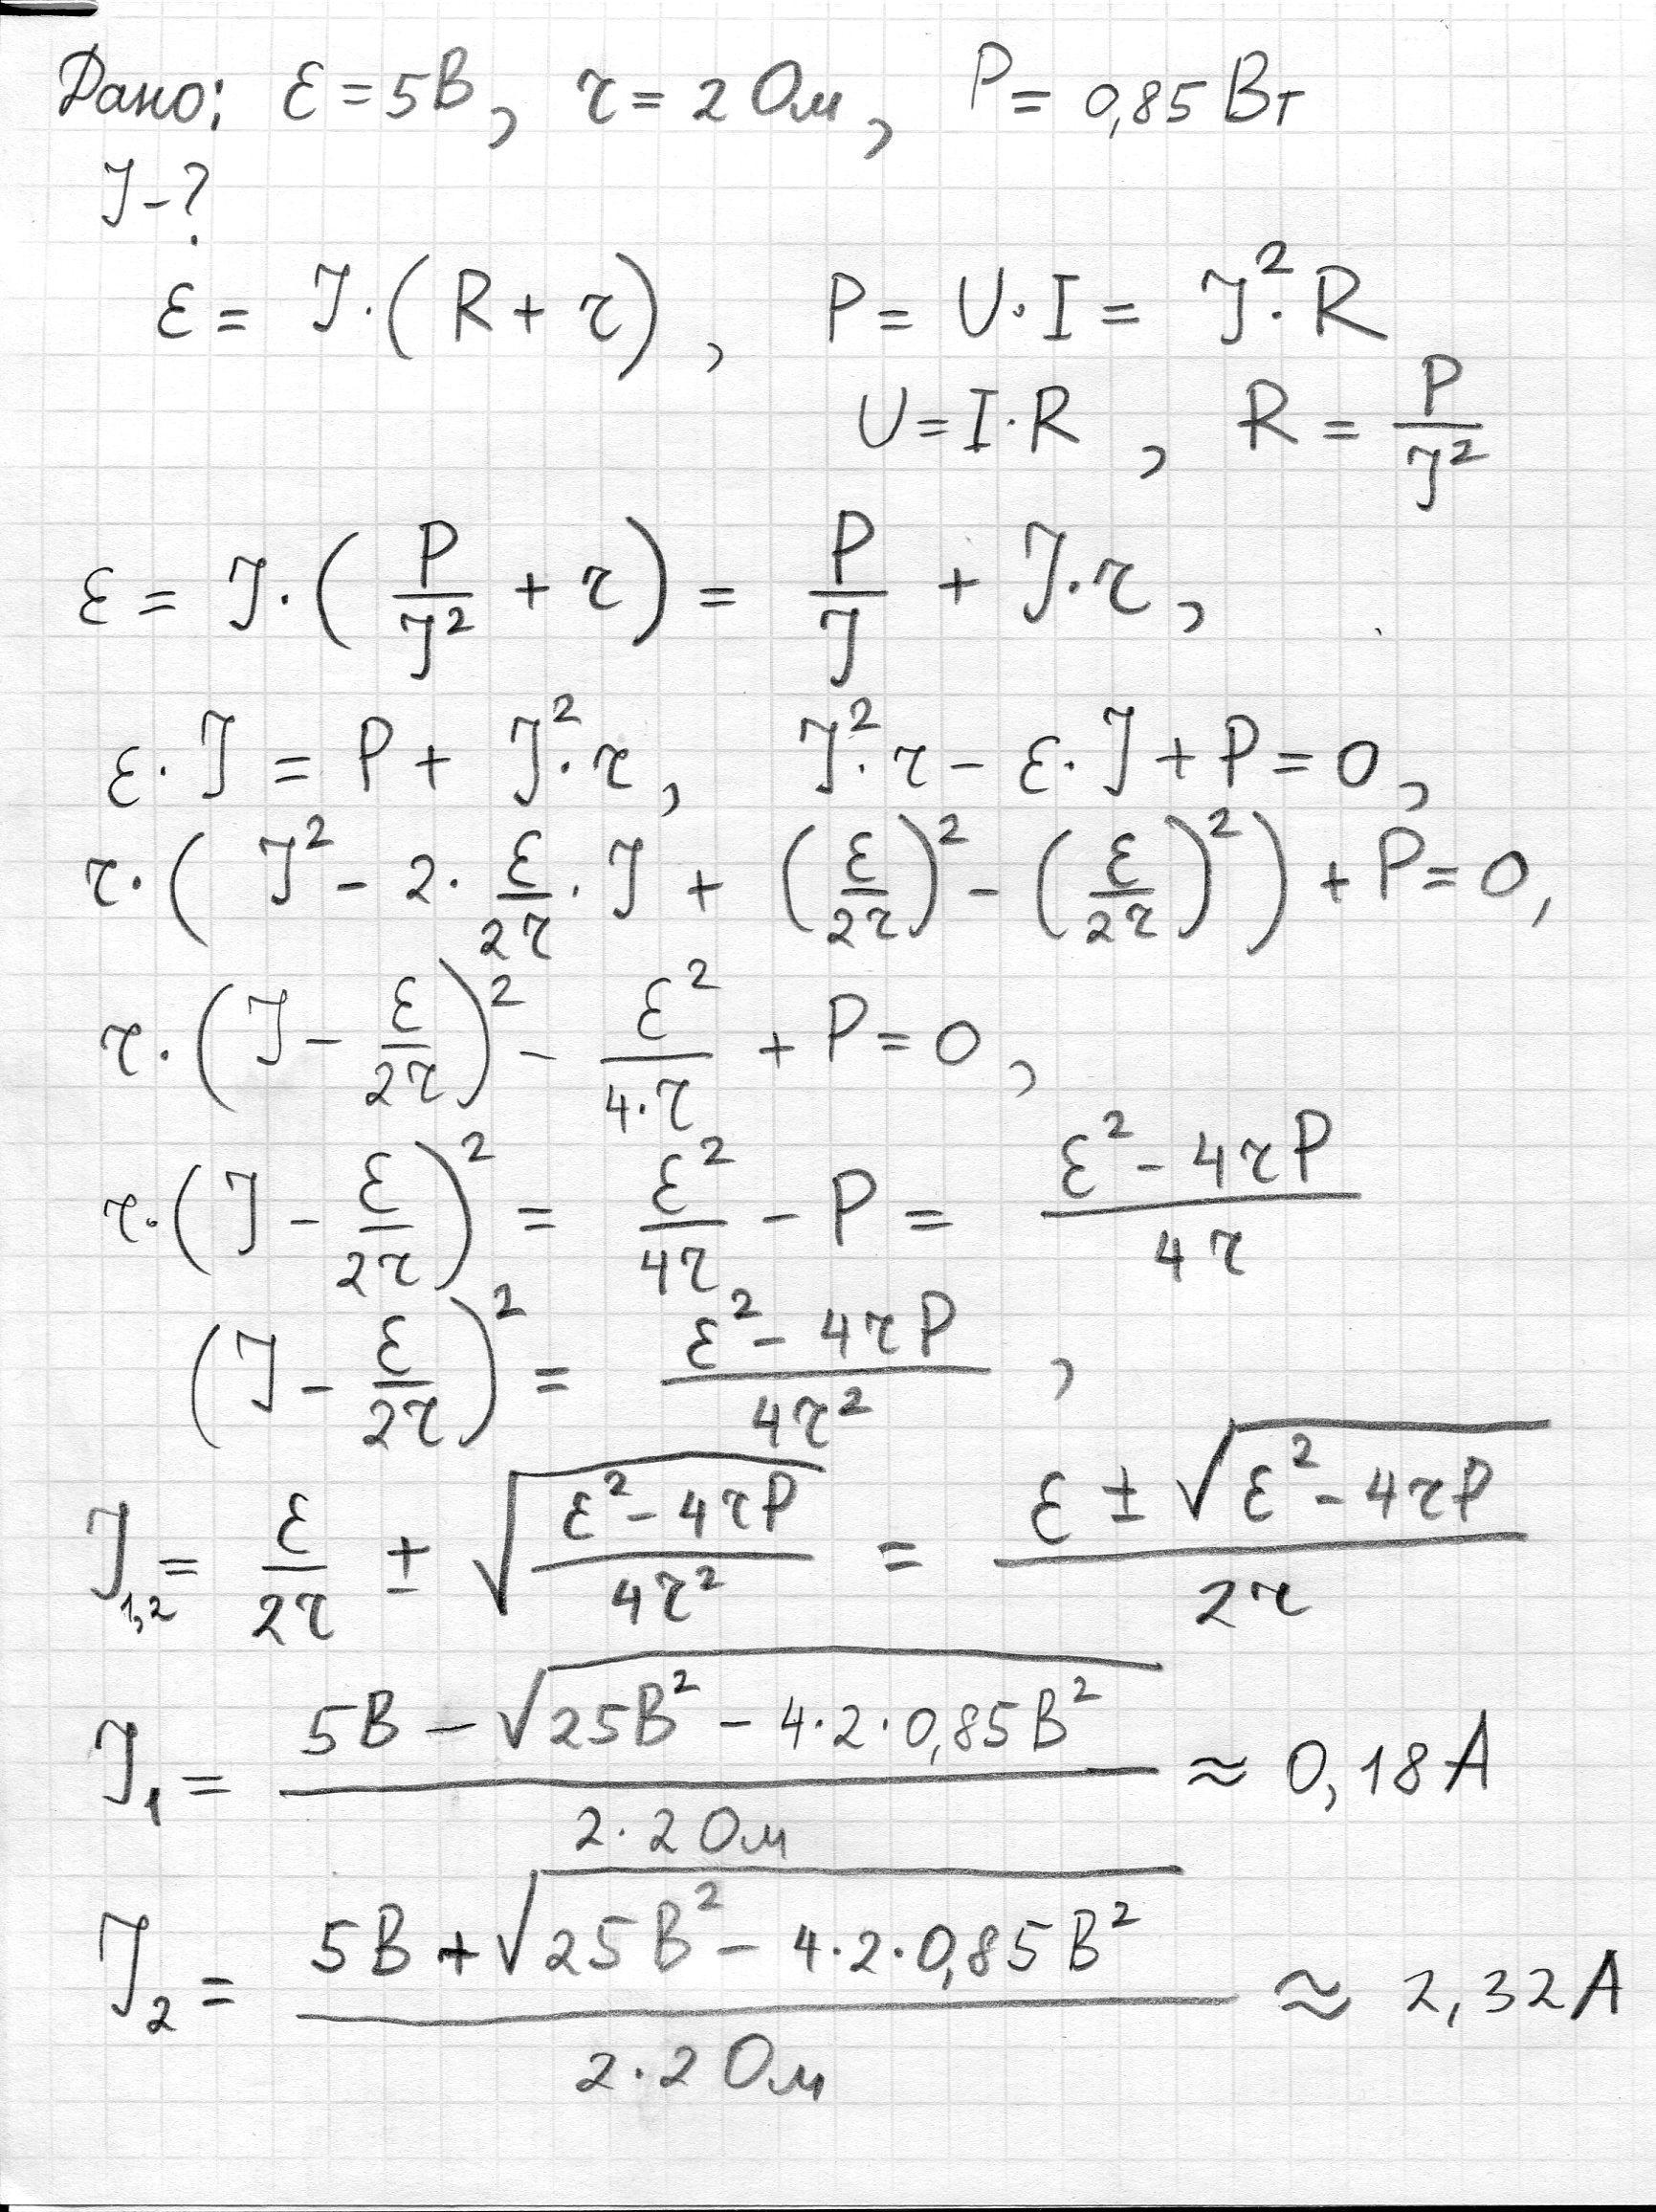 Дано: ℰ = 5В, r = 2 Ом, P = 0,85 Вт
J - ?
ℰ = J·(R + r), P = U·I = J²·R
U = I·R, R = P/J²
ℰ = J·(P/J² + r) = P/J + J·r,
ℰ·J = P + J²·r, J²·r - ℰ·J + P = 0,
r·(J² - 2·ℰ/2r·J + (ℰ/2r)² - (ℰ/2r)²) + P = 0,
r·(J - ℰ/2r)² - ℰ²/4·r + P = 0,
r·(J - ℰ/2r)² = ℰ²/4r - P = (ℰ² - 4rP)/4r
(J - ℰ/2r)² = (ℰ² - 4rP)/4r²,
J₁,₂ = ℰ/2r ± √((ℰ² - 4rP)/4r²) = (ℰ ± √(ℰ² - 4rP))/2r
J₁ = (5В - √(25В² - 4·2·0,85В²))/(2·2 Ом) ≈ 0,18 А
J₂ = (5В + √(25В² - 4·2·0,85В²))/(2·2 Ом) ≈ 2,32 А